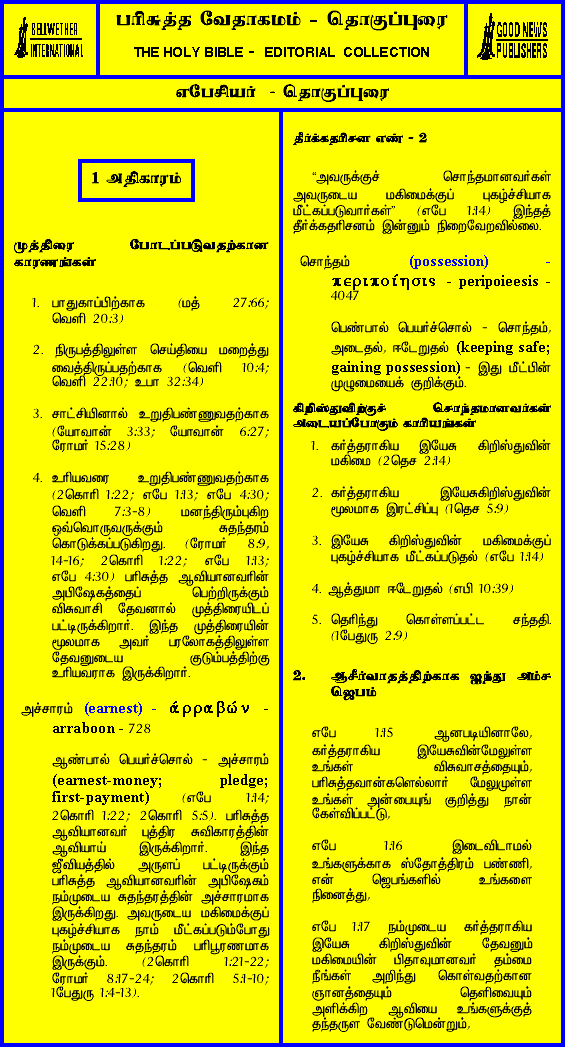 BELLWETHER
INTERNATIONAL
பரிசுத்த வேதாகமம் - தொகுப்புரை
THE HOLY BIBLE - EDITORIAL COLLECTION
GOOD NEWS
PUBLISHERS
எபேசியர் - தொகுப்புரை
1 அதிகாரம்
முத்திரை போடப்படுவதற்கான
காரணங்கள்
1. பாதுகாப்பிற்காக (மத் 27:66;
வெளி 20:3)
2. நிருபத்திலுள்ள செய்தியை மறைத்து
வைத்திருப்பதற்காக (வெளி 10:4;
வெளி 22:10; உபா 32:34)
3. சாட்சியினால் உறுதிபண்ணுவதற்காக
(யோவான் 3:33; யோவான் 6:27;
ரோமர் 15:28)
4. உரியவரை உறுதிபண்ணுவதற்காக
(2கொரி 1:22; எபே 1:13; எபே 4:30;
வெளி 7:3-8) மனந்திரும்புகிற
ஒவ்வொருவருக்கும் சுதந்தரம்
கொடுக்கப்படுகிறது. (ரோமர் 8:9,
14-16; 2கொரி 1:22; எபே 1:13;
எபே 4:30) பரிசுத்த ஆவியானவரின்
அபிஷேகத்தைப் பெற்றிருக்கும்
விசுவாசி தேவனால் முத்திரையிடப்
பட்டிருக்கிறார். இந்த முத்திரையின்
மூலமாக அவர் பரலோகத்திலுள்ள
தேவனுடைய குடும்பத்திற்கு
உரியவராக இருக்கிறார்.
அச்சாரம் (earnest) - ἀρραβών -
arraboon - 728
ஆண்பால் பெயர்ச்சொல் - அச்சாரம்
(earnest-money; pledge;
first-payment) (எபே 1:14;
2கொரி 1:22; 2கொரி 5:5). பரிசுத்த
ஆவியானவர் புத்திர சுவிகாரத்தின்
ஆவியாய் இருக்கிறார். இந்த
ஜீவியத்தில் அருளப் பட்டிருக்கும்
பரிசுத்த ஆவியானவரின் அபிஷேகம்
நம்முடைய சுதந்தரத்தின் அச்சாரமாக
இருக்கிறது. அவருடைய மகிமைக்குப்
புகழ்ச்சியாக நாம் மீட்கப்படும்போது
நம்முடைய சுதந்தரம் பரிபூரணமாக
இருக்கும். (2கொரி 1:21-22;
ரோமர் 8:17-24; 2கொரி 5:1-10;
1பேதுரு 1:4-13).
தீர்க்கதரிசன எண் - 2
“அவருக்குச் சொந்தமானவர்கள்
அவருடைய மகிமைக்குப் புகழ்ச்சியாக
மீட்கப்படுவார்கள்” (எபே 1:14) இந்தத்
தீர்க்கதரிசனம் இன்னும் நிறைவேறவில்லை.
சொந்தம் (possession) -
περιποίησις - peripoieesis -
4047
பெண்பால் பெயர்ச்சொல் - சொந்தம்,
அடைதல், ஈடேறுதல் (keeping safe;
gaining possession) - இது மீட்பின்
முழுமையைக் குறிக்கும்.
கிறிஸ்துவிற்குச் சொந்தமானவர்கள்
அடையப்போகும் காரியங்கள்
1. கர்த்தராகிய இயேசு கிறிஸ்துவின்
மகிமை (2தெச 2:14)
2. கர்த்தராகிய இயேசுகிறிஸ்துவின்
மூலமாக இரட்சிப்பு (1தெச 5:9)
3. இயேசு கிறிஸ்துவின் மகிமைக்குப்
புகழ்ச்சியாக மீட்கப்படுதல் (எபே 1:14)
4. ஆத்துமா ஈடேறுதல் (எபி 10:39)
5. தெரிந்து கொள்ளப்பட்ட சந்ததி.
(1பேதுரு 2:9)
2. ஆசீர்வாதத்திற்காக ஐந்து அம்ச
ஜெபம்
எபே 1:15 ஆனபடியினாலே,
கர்த்தராகிய இயேசுவின்மேலுள்ள
உங்கள் விசுவாசத்தையும்,
பரிசுத்தவான்களெல்லார் மேலுமுள்ள
உங்கள் அன்பையுங் குறித்து நான்
கேள்விப்பட்டு,
எபே 1:16 இடைவிடாமல்
உங்களுக்காக ஸ்தோத்திரம் பண்ணி,
என் ஜெபங்களில் உங்களை
நினைத்து,
எபே 1:17 நம்முடைய கர்த்தராகிய
இயேசு கிறிஸ்துவின் தேவனும்
மகிமையின் பிதாவுமானவர் தம்மை
நீங்கள் அறிந்து கொள்வதற்கான
ஞானத்தையும் தெளிவையும்
அளிக்கிற ஆவியை உங்களுக்குத்
தந்தருள வேண்டுமென்றும்,